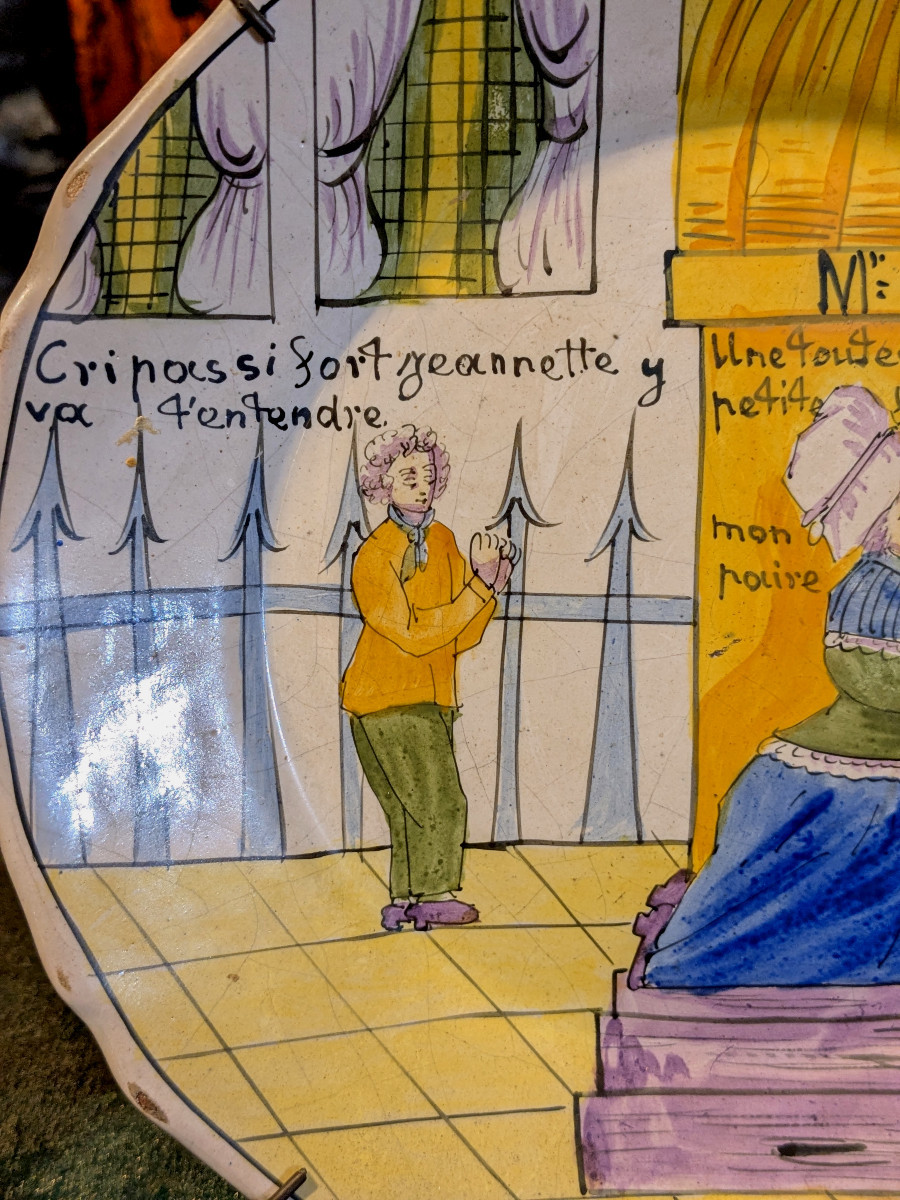 Cri pas si fort jeannette y
va t'entendre.
M.
Une toute
petite
mon
paire